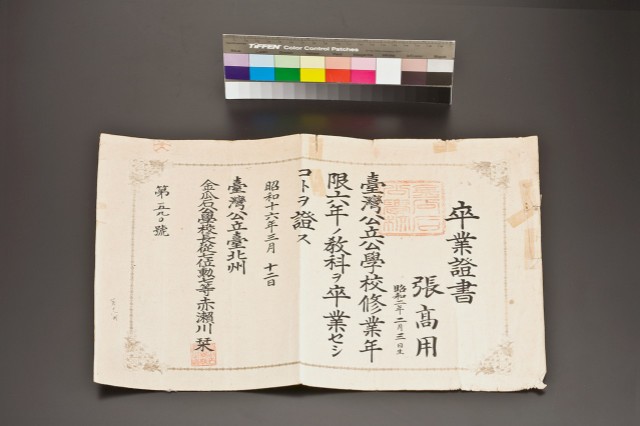 TIFFEN Color Control Patches
卒業證書
張髙用
昭和二年二月三日生
臺灣公立公學校修業年
限六年ノ教科ヲ卒業セシ
コトヲ證ス
昭和十六年三月十二日
臺灣公立臺北州
金瓜石公學校長從七位勲七等赤瀬川栞
第五九〇號